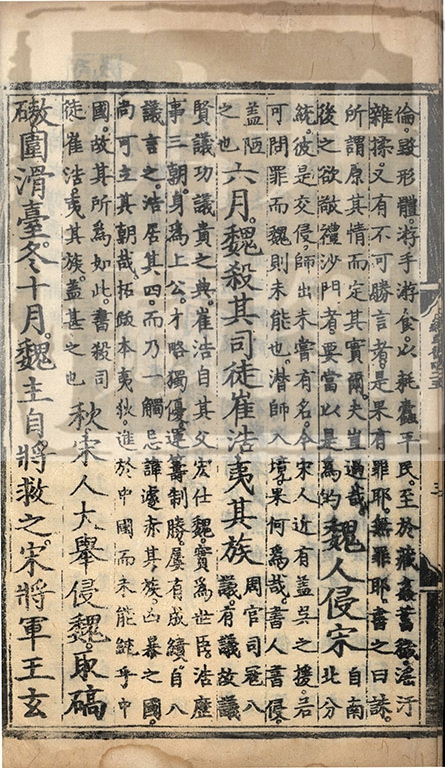 倫毀形體游手游食以耗蠹平民至於藏姦蓄穢淫汙
雜揉又有不可勝言者是果有罪耶無罪耶書之曰誅
所謂原其情而定其實爾夫豈過哉
後之欲敬禮沙門者要當以是為的
魏人侵宋
自南
北分
統彼是交侵師出未嘗有名今宋人近有蓋吳之援若
可問罪而魏則未能也潛師入境果何為哉書人書侵
蓋陋
之也
六月魏殺其司徒崔浩夷其族
周官司寇八
議有議故議
賢議功議貴之典崔浩自其父宏仕魏實為世臣浩歷
事三朝身為上公才略獨優運籌制勝屢有成績自八
議言之浩居其四而乃一觸忌諱遽赤其族凶暴之國
尚可立其朝哉拓跋本夷狄進於中國而未能純乎中
國故其所為如此書殺司
徒崔浩夷其族蓋甚之也
秋宋人大舉侵魏取碻
磝圍滑臺冬十月魏主自將救之宋將軍王玄